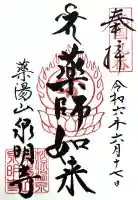 奉拝
令和六年六月十七日
薬師如来
薬湯山
泉明寺